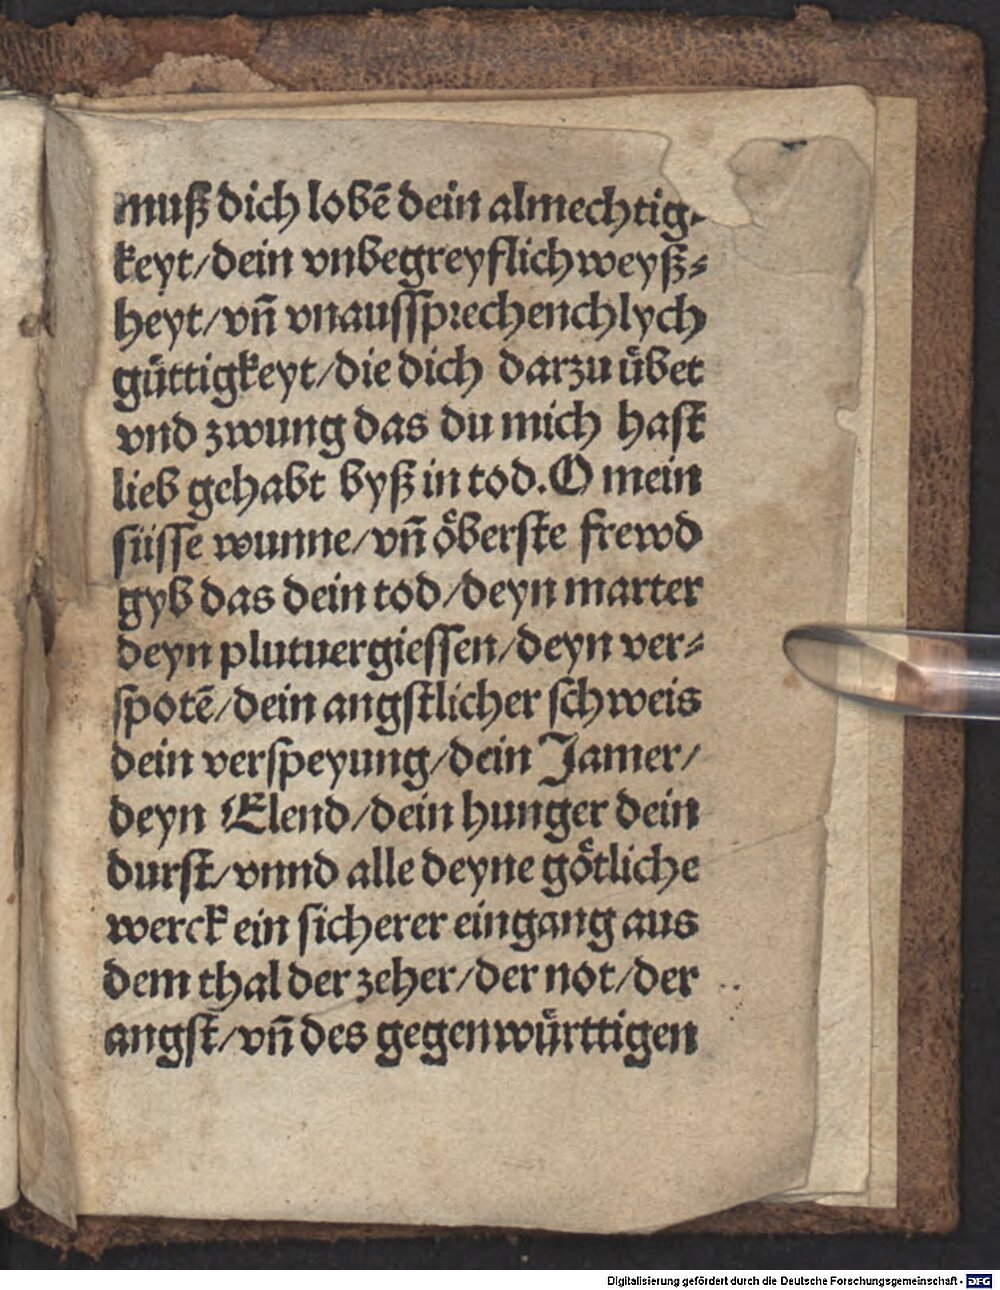 muß dich lobē dein almechtig⸗
keyt/dein vnbegreyflich weyß⸗
heyt/vñ vnausſprechenchlych
guͤttigkeyt/die dich darzu uͤbet
vnd zwung das du mich haſt
lieb gehabt byß in tod. O mein
ſuͤſſe wunne/vñ oͤberſte frewd
gyb das dein tod/deyn marter
deyn plutuergieſſen/deyn ver⸗
ſpotē/dein angſtlicher ſchweis
dein verſpeyung/dein Jamer/
deyn Elend/dein hunger dein
durſt/vnnd alle deyne goͤtliche
werck ein ſicherer eingang aus
dem thal der zeher/der not/der
angſt/vñ des gegenwuͤrttigen
Digitalisierung gefördert durch die Deutsche Forschungsgemeinschaft - DFG